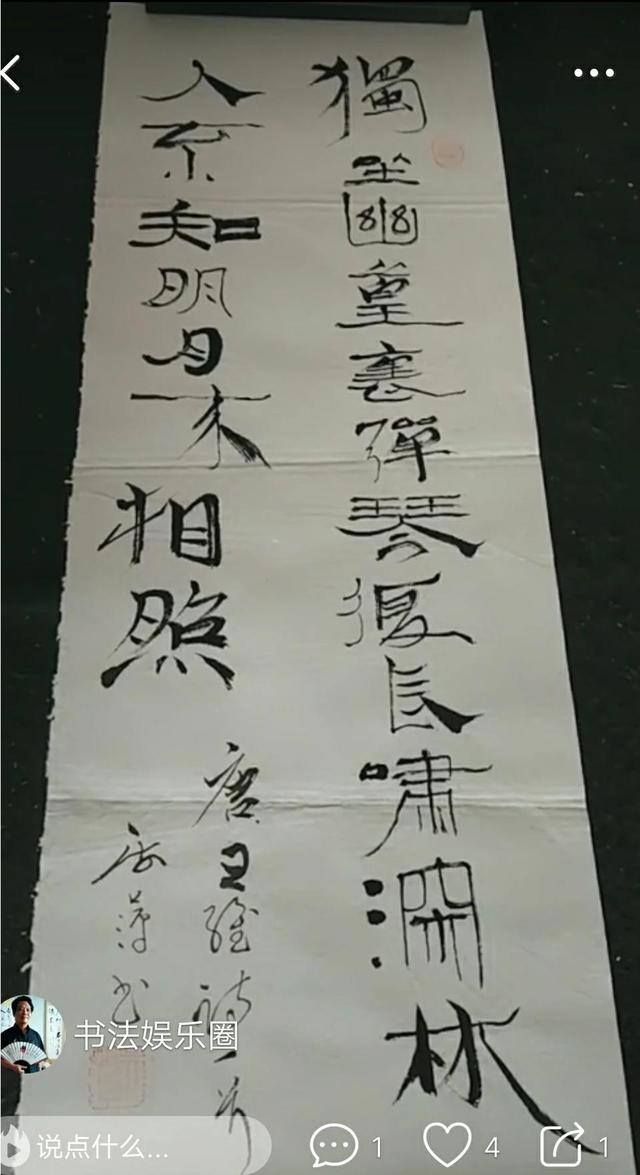 獨坐幽篁裏彈琴復長嘯深林
人不知明月来相照
唐王維詩一首
萍书
书法娱乐圈
说点什么...
1
4
1